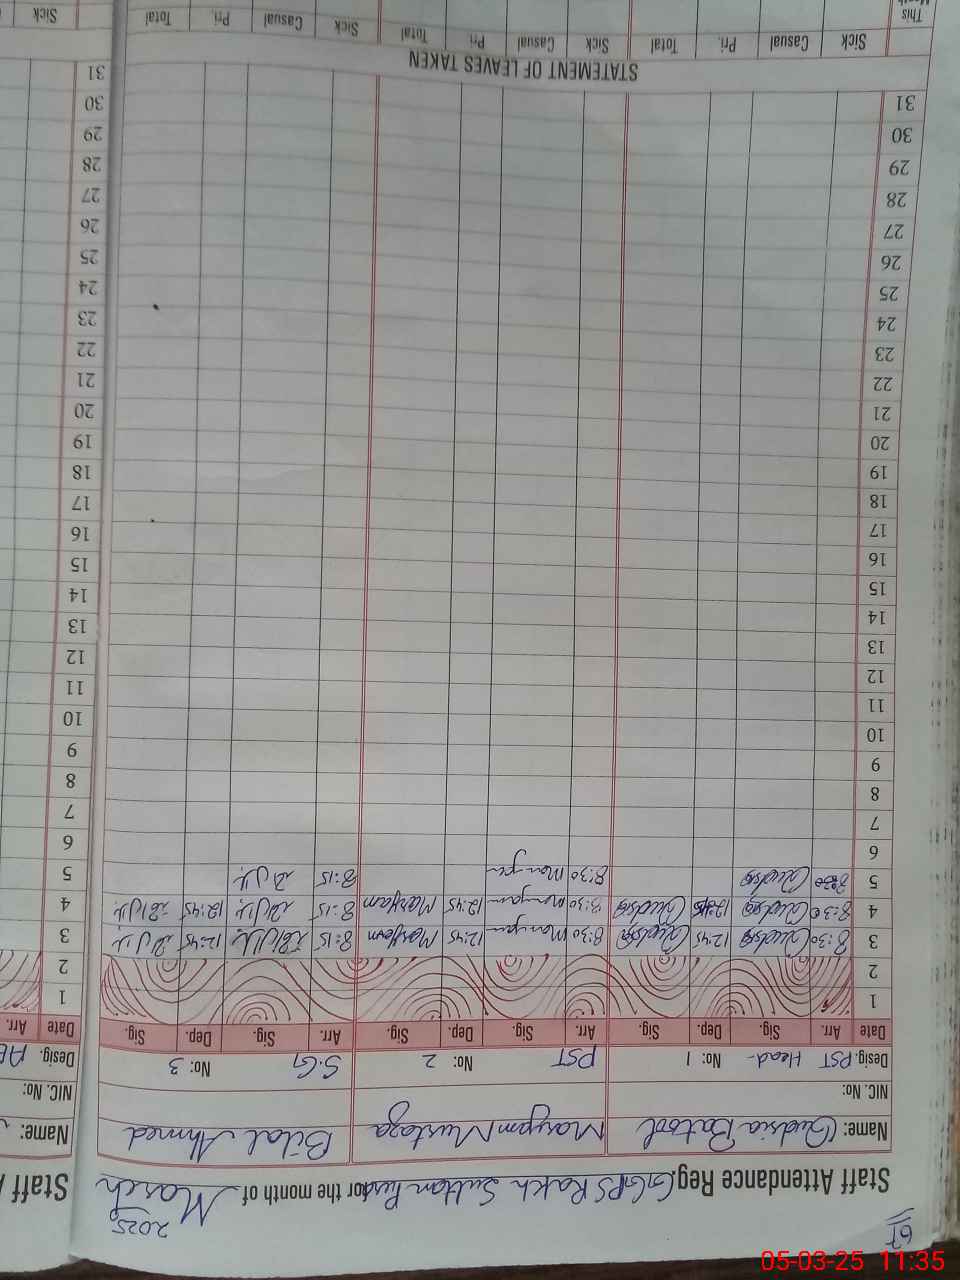 2025
Staff Attendance Reg. GGPS Rakh Sultan Pur for the month of March
Name: Qudsia Batool Maryam Mustaza Bilal Ahmed
NIC. No:
Desig. PST Head- No: 1 PST No: 2 S.G No: 3
Date Arr. Sig. Dep. Sig. Arr. Sig. Dep. Sig. Arr. Sig. Dep. Sig.
1
2
3 8:30 Qudsia 12:45 Qudsia 8:30 Maryam 12:45 Maryam 8:15 بلال 12:45 بلال
4 8:30 Qudsia 12:45 Qudsia 8:30 Maryam 12:45 Maryam 8:15 بلال 12:45 بلال
5 8:30 Qudsia 8:30 Maryam 8:15 بلال
6
7
8
9
10
11
12
13
14
15
16
17
18
19
20
21
22
23
24
25
26
27
28
29
30
31
STATEMENT OF LEAVES TAKEN
Sick Casual Pri. Total Sick Casual Pri. Total Sick Casual Pri. Total
This Month
Staff
Name:
NIC. No:
Desig.
Date Arr.
1
2
3
4
5
6
7
8
9
10
11
12
13
14
15
16
17
18
19
20
21
22
23
24
25
26
27
28
29
30
31
Sick
05-03-25 11:35